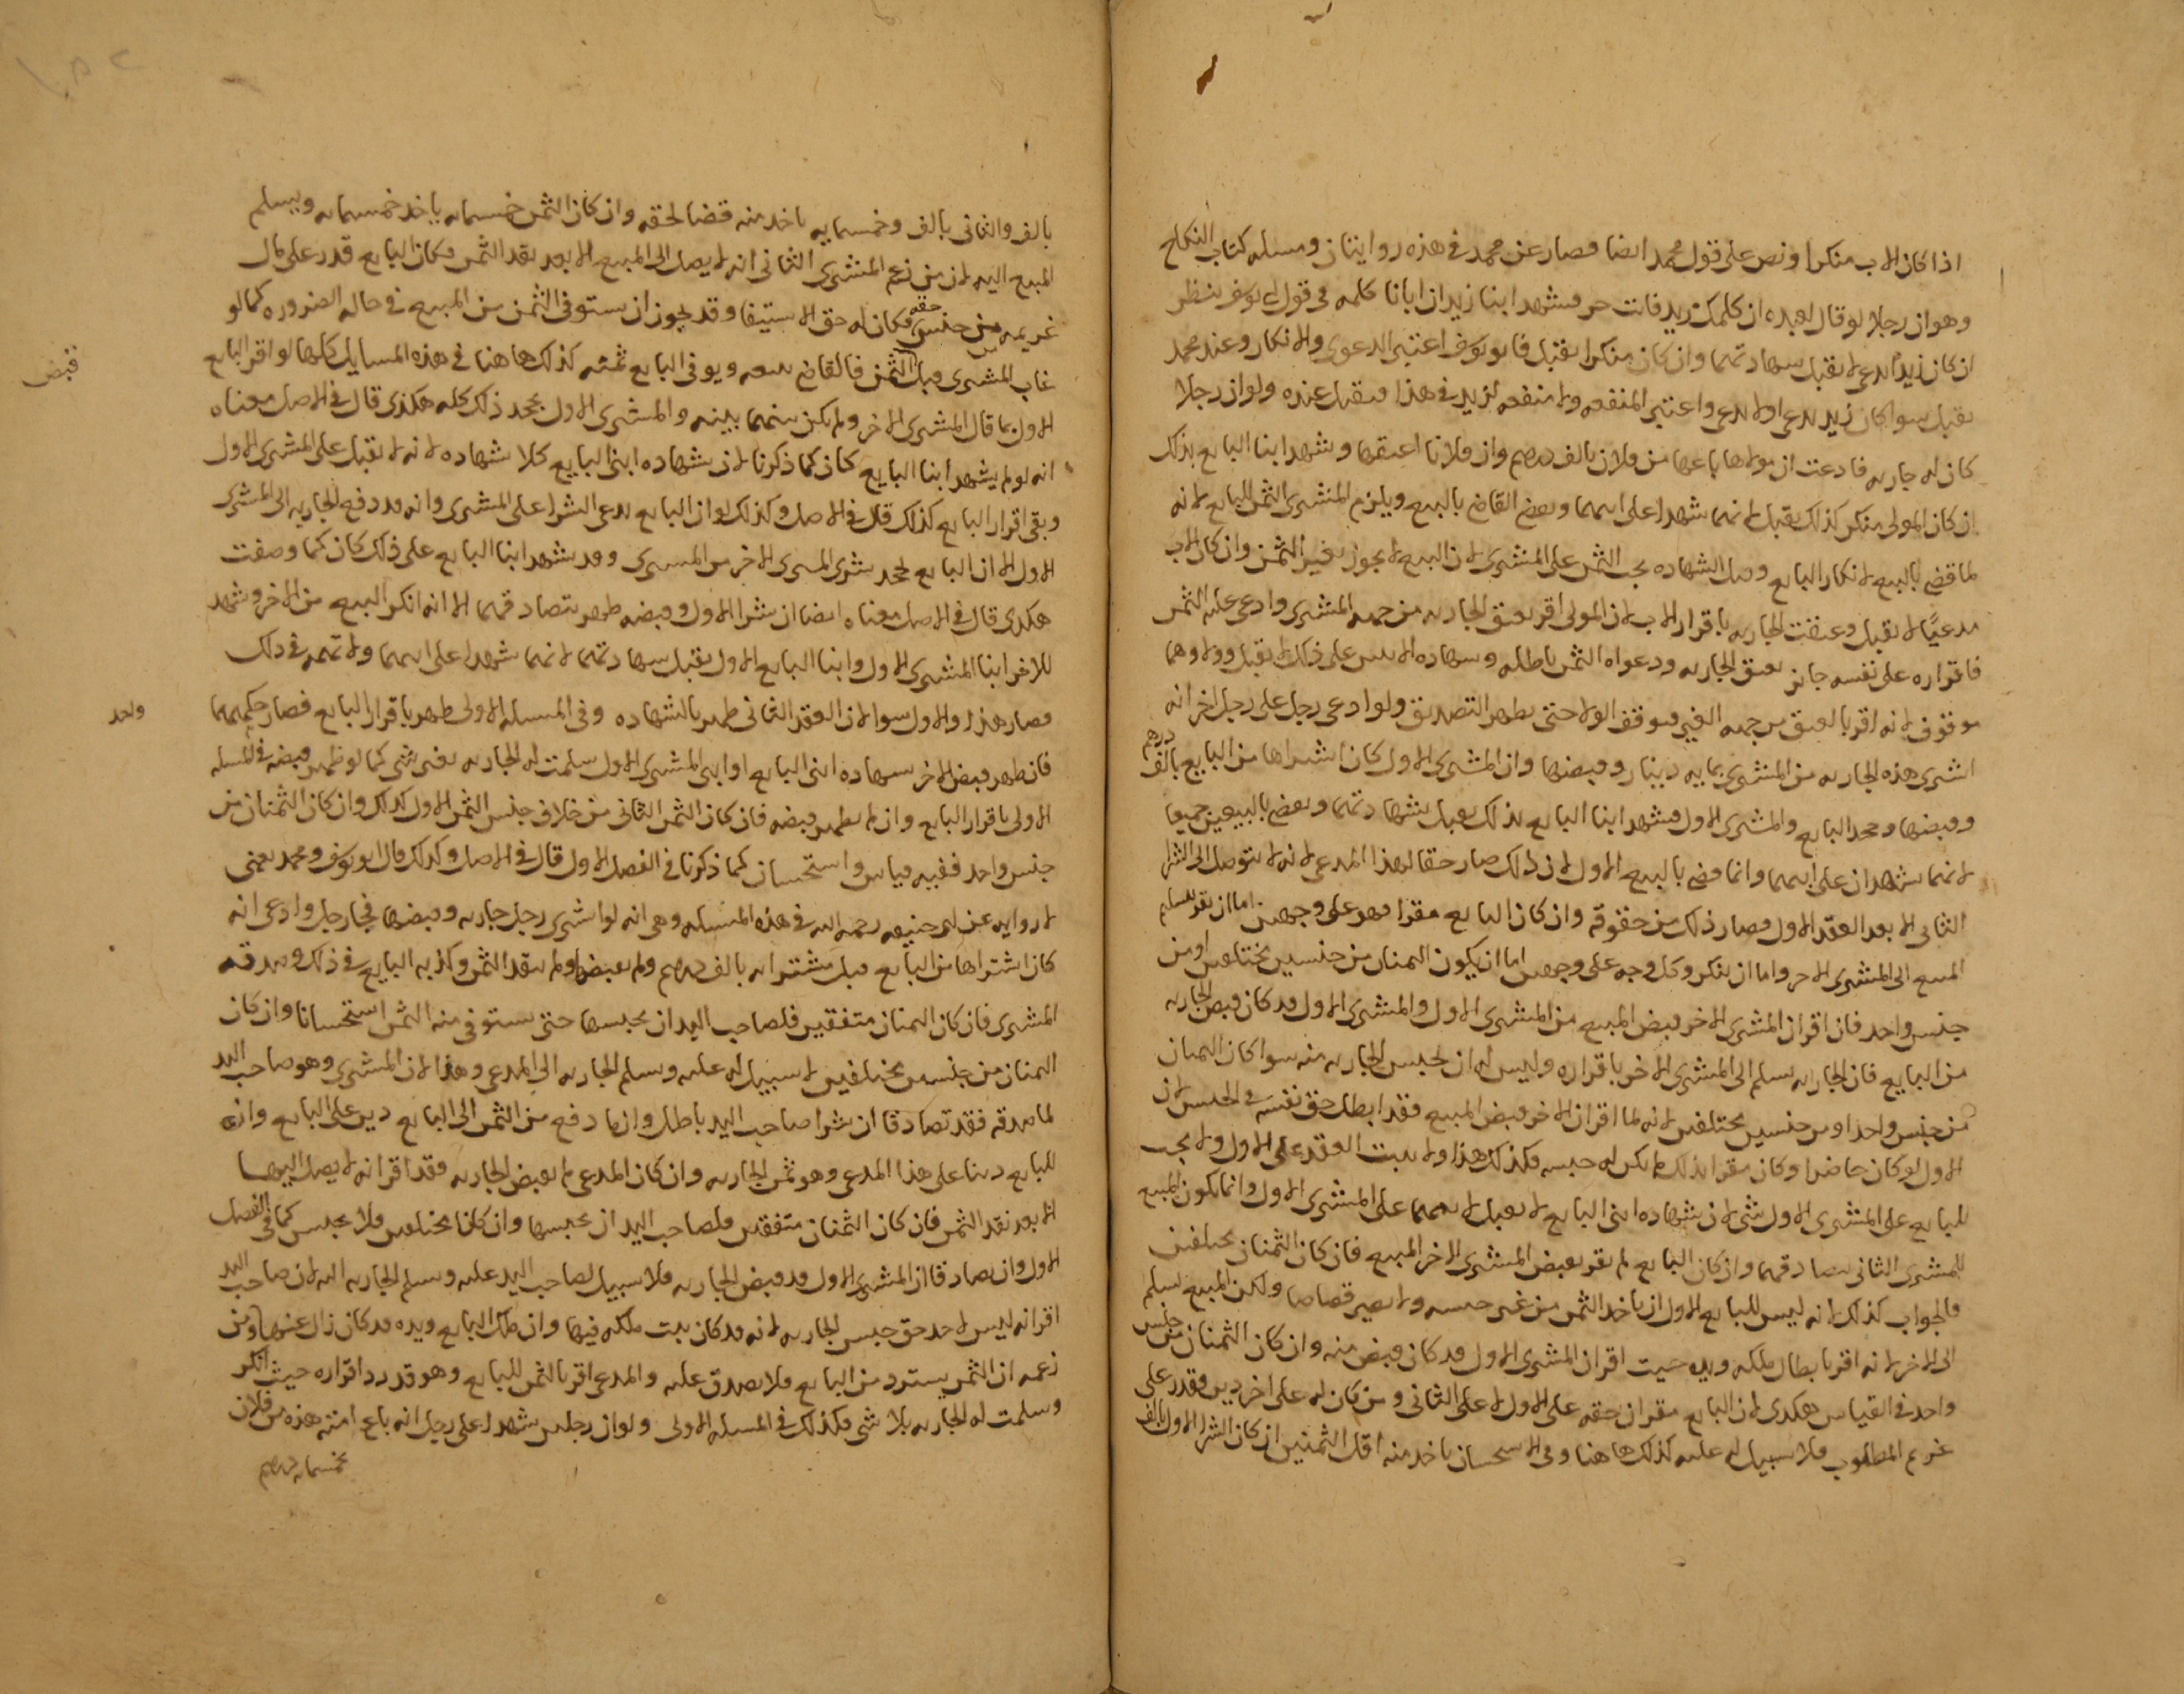 اذا كان الاب منكرا ونص على قول محمد ايضا فصار عن محمد في هذه روايتان ومسله كتاب النكاح
وهو ان رجلا لو قال لعبده ان كلمك زيد فانت حر فشهد ابنا زيد ان ابانا كلمه في قول ابي يوسف ينظر
ان كان زيدا يدعي لا يقبل شهادتهما وان كان منكرا يقبل فابو يوسف اعتبر الدعوى والانكار وعند محمد
يقبل سوا كان زيد يدعي او لا يدعي واعتبر المنفعه ولا منفعه لزيد في هذا فيقبل عنده ولو ان رجلا
كان له جاريه فادعت ان مولاها باعها من فلان بالف درهم وان فلانا اعتقها وشهد ابنا البايع بذلك
ان كان المولى منكر كذلك يقبل لانهما شهدا على ابيهما ويقضي القاضي بالبيع ويلزم المشتري الثمن للبايع لانه
لما قضي بالبيع لانكار البايع وقبل الشهاده يجب الثمن على المشتري لان البيع لا يجوز بغير الثمن وان كان الاب
مدعيا لا يقبل وعتقت الجاريه باقرار الاب لان المولى اقر بعتق الجاريه من جهه المشتري وادعى عليه الثمن
فاقراره على نفسه جايز بعتق الجاريه ودعواه الثمن باطله وشهاده الابنين على ذلك لا يقبل وولاوهما
موقوف لانه اقر بالعتق من جهه الغير فيوقف الولا حتى يظهر التصديق ولو ادعى رجل على رجل اخر انه
اشترى هذه الجاريه من المشتري بمايه دينار وقبضها وان المشتري الاول كان اشتراها من البايع بالف درهم
وقبضها وجحد البايع والمشتري الاول فشهد ابنا البايع بذلك يقبل شهادتهما ويقضي بالبيعين جميعا
لانهما يشهدان على ابيهما وانما قضي بالبيع الاول لان ذلك صار حقا لهذا المدعي لانه لا يتوصل الى الشرا
الثاني الا بعد العقد الاول فصار ذلك من حقوقه وان كان البايع مقرا فهو على وجهين اما ان يقر بتسليم
المبيع الى المشتري الاخر واما ان ينكر وكل وجه على وجهين اما ان يكون الثمنان من جنسين مختلفين او من
جنس واحد فان اقر ان المشتري الاخر قبض المبيع من المشتري الاول والمشتري الاول قد كان قبض الجاريه
من البايع فان الجاريه يسلم الى المشتري الاخر باقراره وليس له ان يحبس الجاريه منه سوا كان الثمنان
من جنس واحد او من جنسين مختلفين لانه لما اقر ان الاخر قبض المبيع فقد ابطل حق نفسه في الحبس لان
الاول لو كان حاضرا وكان مقرا بذلك لم يكن له حبسه فكذلك هذا ولا يثبت العقد على الاول ولا يجب
للبايع على المشتري الاول شي لان شهاده ابني البايع لا يقبل لابيهما على المشتري الاول وانما يكون المبيع
للمشتري الثاني بتصادقهما وان كان البايع لم يقر بقبض المشتري الاخر المبيع فان كان الثمنان مختلفين
فالجواب كذلك لانه ليس للبايع الاول ان ياخذ الثمن من غير جنسه ولا يصير قصاصا ولكن المبيع يسلم
الى الاخر لانه اقر بابطال ملكه ويده حيث اقر ان المشتري الاول قد كان قبض منه وان كان الثمنان من جنس
واحد في القياس هكذى لان البايع مقر ان حقه على الاول لا على الثاني ومن كان له على اخر دين فقدر على
غريم المطلوب فلا سبيل له عليه كذلك هاهنا وفي الاستحسان ياخذ منه اقل الثمنين ان كان الشرا الاول بالف
بالف والثاني بالف وخمسمايه ياخذ منه قضا لحقه وان كان الثمن خمسمايه ياخذ خمسمايه ويسلم
المبيع اليه لان من زعم المشتري الثاني انه لا يصل الى المبيع الا بعد نقد الثمن فكان البايع قدر على مال
غريمه من جنس حقه فكان له حق الاستيفا وقد يجوز ان يستوفي الثمن من المبيع في حاله الضروره كما لو
غاب المشتري قبل الثمن فالقاضي يبيعه ويوفي البايع ثمنه كذلك هاهنا في هذه المسايل كلها لو اقر البايع
قبض
الاول بما قال المشتري الاخر ولم يكن بينهما بينه والمشتري الاول يجحد ذلك كله هكذى قال في الاصل معناه
انه لو لم يشهد ابنا البايع كان كما ذكرنا لان شهاده ابني البايع كلا شهاده لانه لا يقبل على المشتري الاول
وبقي اقرار البايع كذلك قال في الاصل وكذلك لو ان البايع يدعي الشرا على المشتري وانه قد دفع الجاريه الى المشتري
الاول الا ان البايع يجحد شرى المشتري الاخر من المشتري وقد يشهد ابنا البايع على ذلك كان كما وصفت
هكذى قال في الاصل معناه ايضا ان شرا الاول وقبضه ظهر بتصادقهما الا انه انكر البيع من الاخر وشهد
للاخر ابنا المشتري الاول وابنا البايع الاول يقبل شهادتهما لانهما شهدا على ابيهما ولا تهمه في ذلك
فصار هذا والاول سوا لان العقد الثاني ظهر بالشهاده وفي المسله الاولى ظهر باقرار البايع فصار حكمهما
واحد
فان ظهر قبض الاخر بشهاده ابني البايع او ابني المشتري الاول سلمت له الجاريه بغير شي كما لو ظهر قبضه في المسله
الاولى باقرار البايع وان لم يظهر قبضه فان كان الثمن الثاني من خلاف جنس الثمن الاول كذلك وان كان الثمنان من
جنس واحد ففيه قياس واستحسان كما ذكرنا في الفصل الاول قال في الاصل وكذلك قال ابو يوسف ومحمد يعني
لا روايه عن ابي حنيفه رحمه الله في هذه المسله وهي انه لو اشترى رجل جاريه وقبضها فجا رجل وادعى انه
كان اشتراها من البايع قبل مشتراه بالف درهم ولم يقبضها ولم ينقد الثمن وكذبه البايع في ذلك وصدقه
المشتري فان كان الثمنان متفقين فلصاحب اليد ان يحبسها حتى يستوفي منه الثمن استحسانا وان كان
الثمنان من جنسين مختلفين لا سبيل له عليه ويسلم الجاريه الى المدعي وهذا لان المشتري وهو صاحب اليد
لما صدقه فقد تصادقا ان شرا صاحب اليد باطل وان ما دفع من الثمن الى البايع دين على البايع وان
للبايع دينا على هذا المدعي وهو ثمن الجاريه وان كان المدعي لم يقبض الجاريه فقد اقر انه لا يصل اليها
الا بعد نقد الثمن فان كان الثمنان متفقين فلصاحب اليد ان يحبسها وان كانا مختلفين فلا يحبس كما في الفصل
الاول وان تصادقا ان المشتري الاول قد قبض الجاريه فلا سبيل لصاحب اليد عليه ويسلم الجاريه اليه لان صاحب اليد
اقر انه ليس لاحد حق حبس الجاريه لانه قد كان يثبت ملكه فيها وان ملك البايع ويده قد كان زال عنها ومن
زعمه ان الثمن يسترد من البايع فلا يصدق عليه والمدعي اقر بالثمن للبايع وهو قد رد اقراره حيث انكر
وسلمت له الجاريه بلا شي فكذلك في المسله الاولى ولو ان رجلين شهدا على رجل انه باع امته هذه من فلان
بخمسمايه درهم